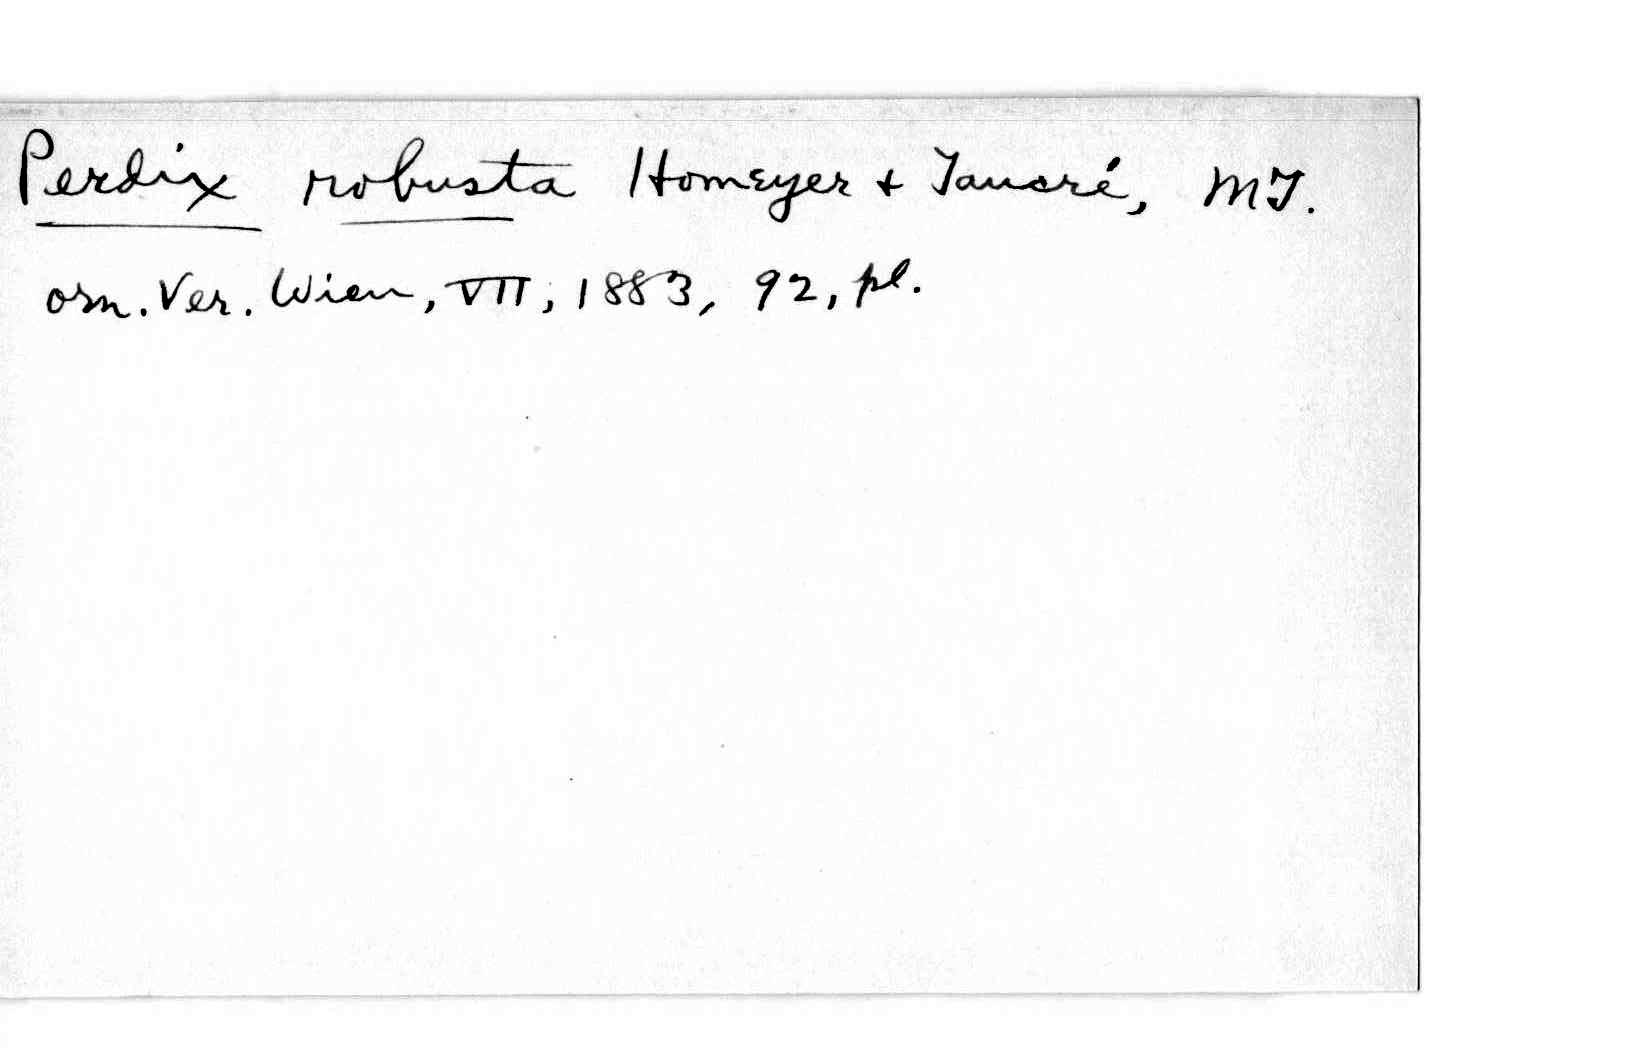 Perdix robusta Homeyer + Tancré, MT.
orn. Ver. Wien, VII, 1883, 92, pl.